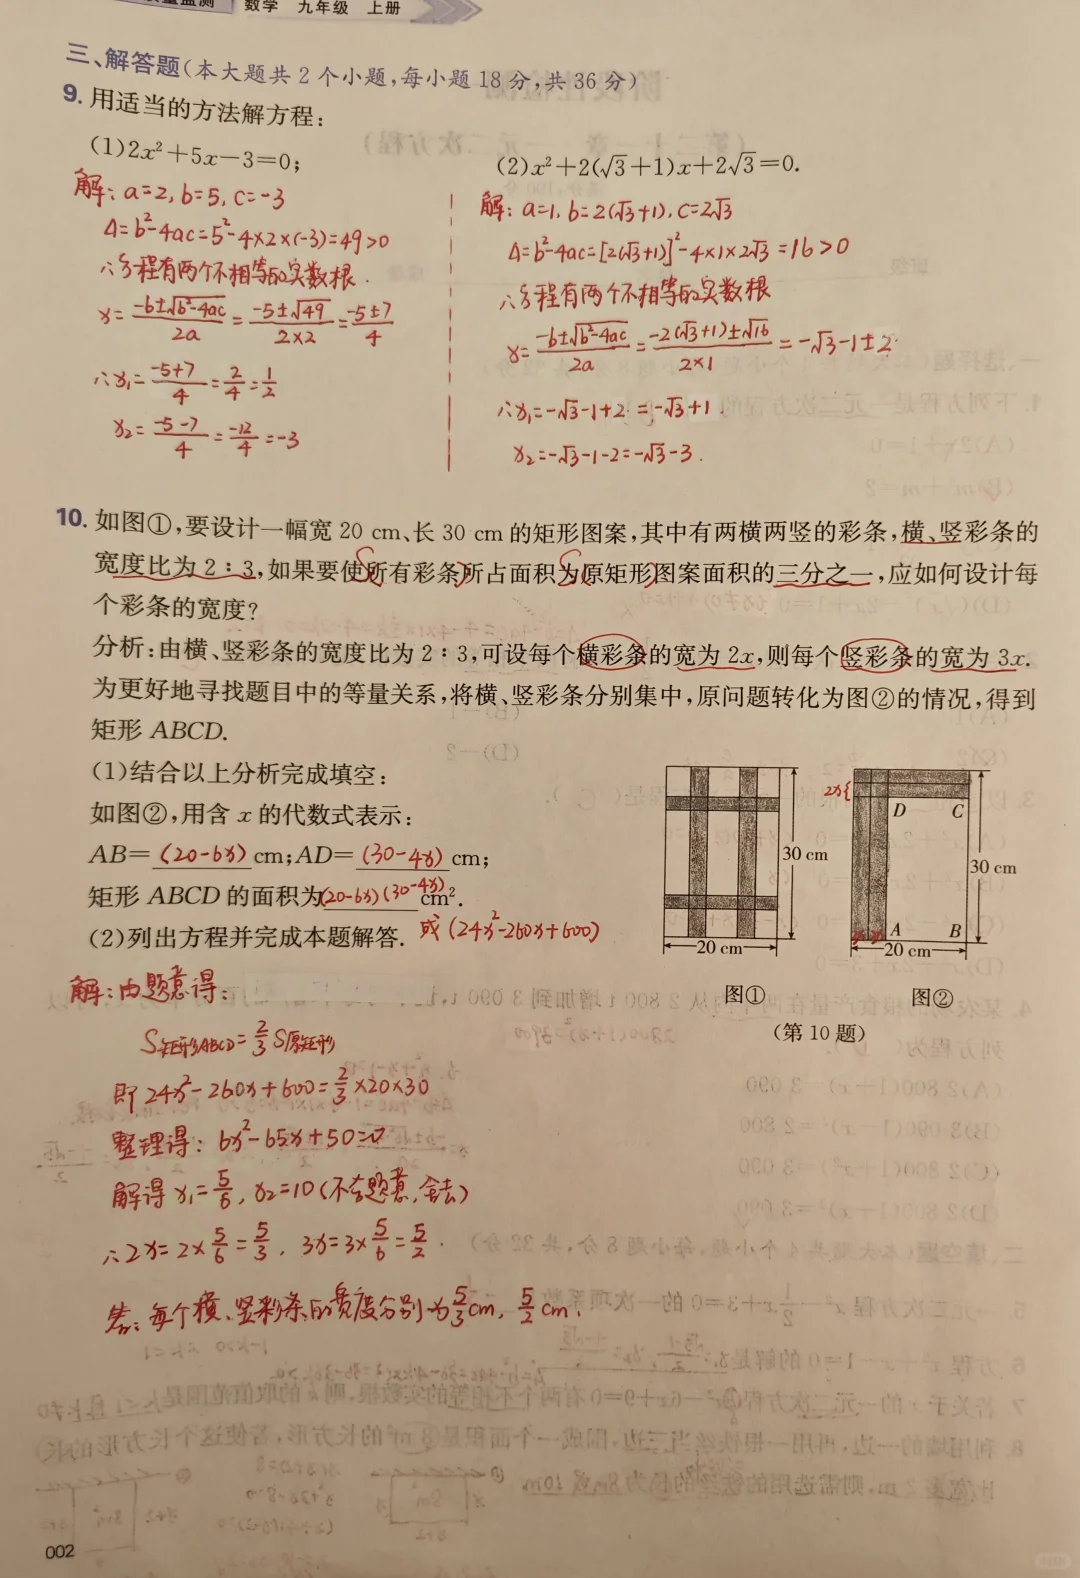 数学 九年级 上册
三、解答题(本大题共2个小题,每小题18分,共36分)
9. 用适当的方法解方程:
(1)2x²+5x-3=0;
解: a=2, b=5, c=-3
Δ=b²-4ac=5²-4×2×(-3)=49>0
∴方程有两个不相等的实数根.
x=(-b±√(b²-4ac))/2a=(-5±√49)/(2×2)=(-5±7)/4
∴x₁=(-5+7)/4=2/4=1/2
x₂=(-5-7)/4=-12/4=-3
(2)x²+2(√3+1)x+2√3=0.
解: a=1, b=2(√3+1), c=2√3
Δ=b²-4ac=[2(√3+1)]²-4×1×2√3=16>0
∴方程有两个不相等的实数根
x=(-b±√(b²-4ac))/2a=(-2(√3+1)±√16)/(2×1)=-√3-1±2
∴x₁=-√3-1+2=-√3+1.
x₂=-√3-1-2=-√3-3.
10. 如图①,要设计一幅宽20 cm、长30 cm的矩形图案,其中有两横两竖的彩条,横、竖彩条的
宽度比为2∶3,如果要使所有彩条所占面积为原矩形图案面积的三分之一,应如何设计每
个彩条的宽度?
分析:由横、竖彩条的宽度比为2∶3,可设每个横彩条的宽为2x,则每个竖彩条的宽为3x.
为更好地寻找题目中的等量关系,将横、竖彩条分别集中,原问题转化为图②的情况,得到
矩形ABCD.
(1)结合以上分析完成填空:
如图②,用含x的代数式表示:
AB=(20-6x)cm;AD=(30-4x)cm;
矩形ABCD的面积为(20-6x)(30-4x)cm².
或(24x²-260x+600)
(2)列出方程并完成本题解答.
30 cm
20 cm
图①
2x{
D C
A B
30 cm
20 cm
图②
(第10题)
解:由题意得:
S矩形ABCD=2/3S原矩形
即24x²-260x+600=2/3×20×30
整理得: 6x²-65x+50=0
解得x₁=5/6, x₂=10(不合题意,舍去)
∴2x=2×5/6=5/3, 3x=3×5/6=5/2.
答:每个横、竖彩条的宽度分别为5/3cm, 5/2cm.
002